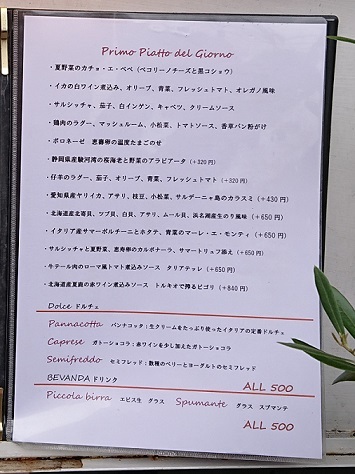 Primo Piatto del Giorno
・夏野菜のカチョ・エ・ペペ（ペコリーノチーズと黒コショウ）
・イカの白ワイン煮込み、オリーブ、青菜、フレッシュトマト、オレガノ風味
・サルシッチャ、茄子、白インゲン、キャベツ、クリームソース
・鶏肉のラグー、マッシュルーム、小松菜、トマトソース、香草パン粉がけ
・ボロネーゼ 恵壽卵の温度たまごのせ
・静岡県産駿河湾の桜海老と野菜のアラビアータ（＋320円）
・仔羊のラグー、茄子、オリーブ、青菜、フレッシュトマト（＋320円）
・愛知県産ヤリイカ、アサリ、枝豆、小松菜、サルデーニャ島のカラスミ（＋430円）
・北海道産北寄貝、ツブ貝、白貝、アサリ、ムール貝、浜名湖産生のり風味（＋650円）
・イタリア産サマーポルチーニとホタテ、青菜のマーレ・エ・モンティ（＋650円）
・サルシッチャと夏野菜、恵寿卵のカルボナーラ、サマートリュフ添え（＋650円）
・牛テール肉のローマ風トマト煮込みソース タリアテッレ（＋650円）
・北海道産夏鹿の赤ワイン煮込みソース トルキオで搾るビゴリ（＋840円）
Dolce ドルチェ
Pannacotta パンナコッタ：生クリームをたっぷり使ったイタリアの定番ドルチェ
Caprese ガトーショコラ：赤ワインを少し加えたガトーショコラ
Semifreddo セミフレッド：数種のベリーとヨーグルトのセミフレッド
ALL 500
BEVANDA ドリンク
Piccola birra エビス生 グラス Spumante グラス スプマンテ
ALL 500